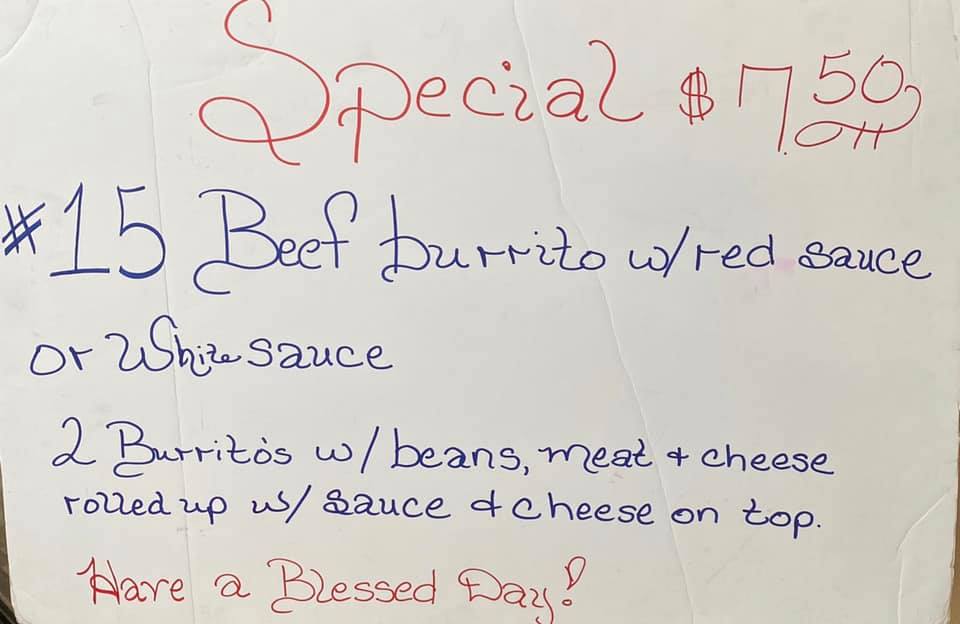 Special $7.50 off
#15 Beef burrito w/red sauce
or White sauce
2 Burrito's w/ beans, meat + cheese
rolled up w/ sauce & cheese on top.
Have a Blessed Day!